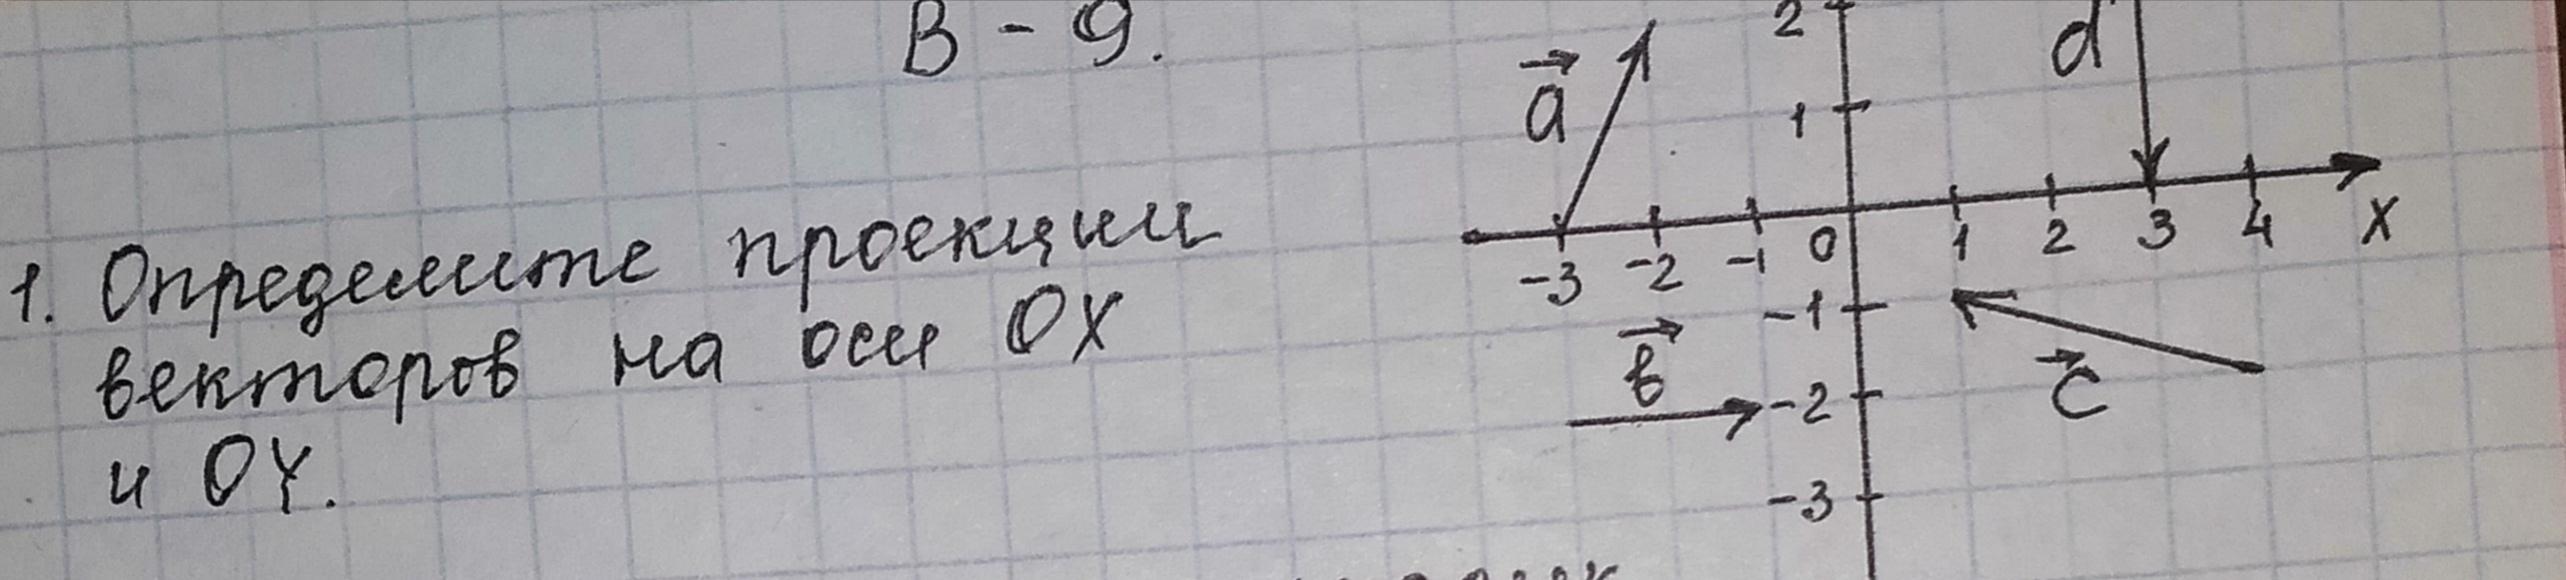 В - 9.
1. Определите проекции
векторов на оси OX
и OY.
2
d
a
1
-3 -2 -1 0 1 2 3 4 X
-1
в
c
-2
-3